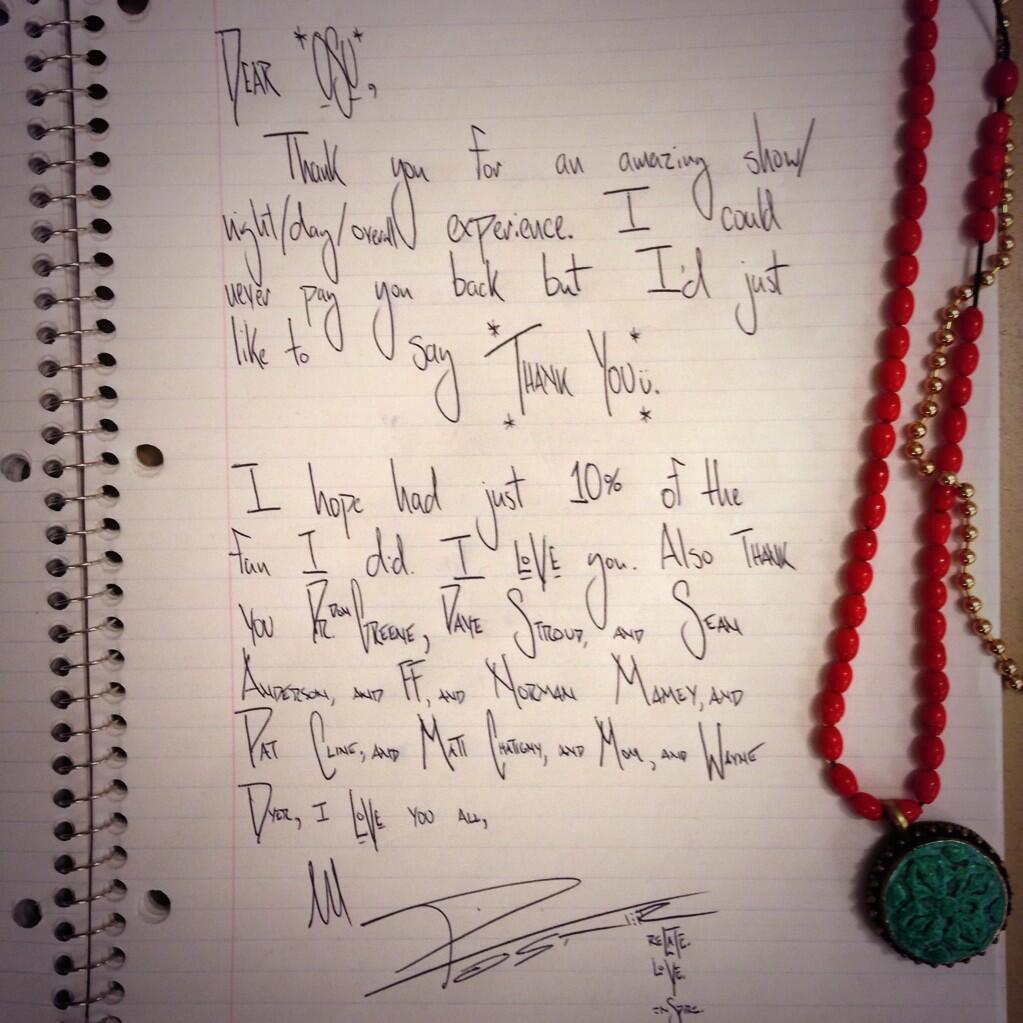 Dear *OSU*,
Thank you for an amazing show/
night/day/overall experience. I could
never pay you back but I'd just
like to say *Thank You ü.
* *
I hope had just 10% of the
fun I did. I LOVE you. Also THANK
YOU DR. DON GREENE, DAVE STROUD, AND SEAN
ANDERSON, AND FF, AND NORMAN MAMEY, AND
PAT CLINE, AND MATT CHATIGNY, AND MOM, AND WAYNE
DYER, I LOVE YOU ALL,
RELATE.
LOVE.
INSPIRE.